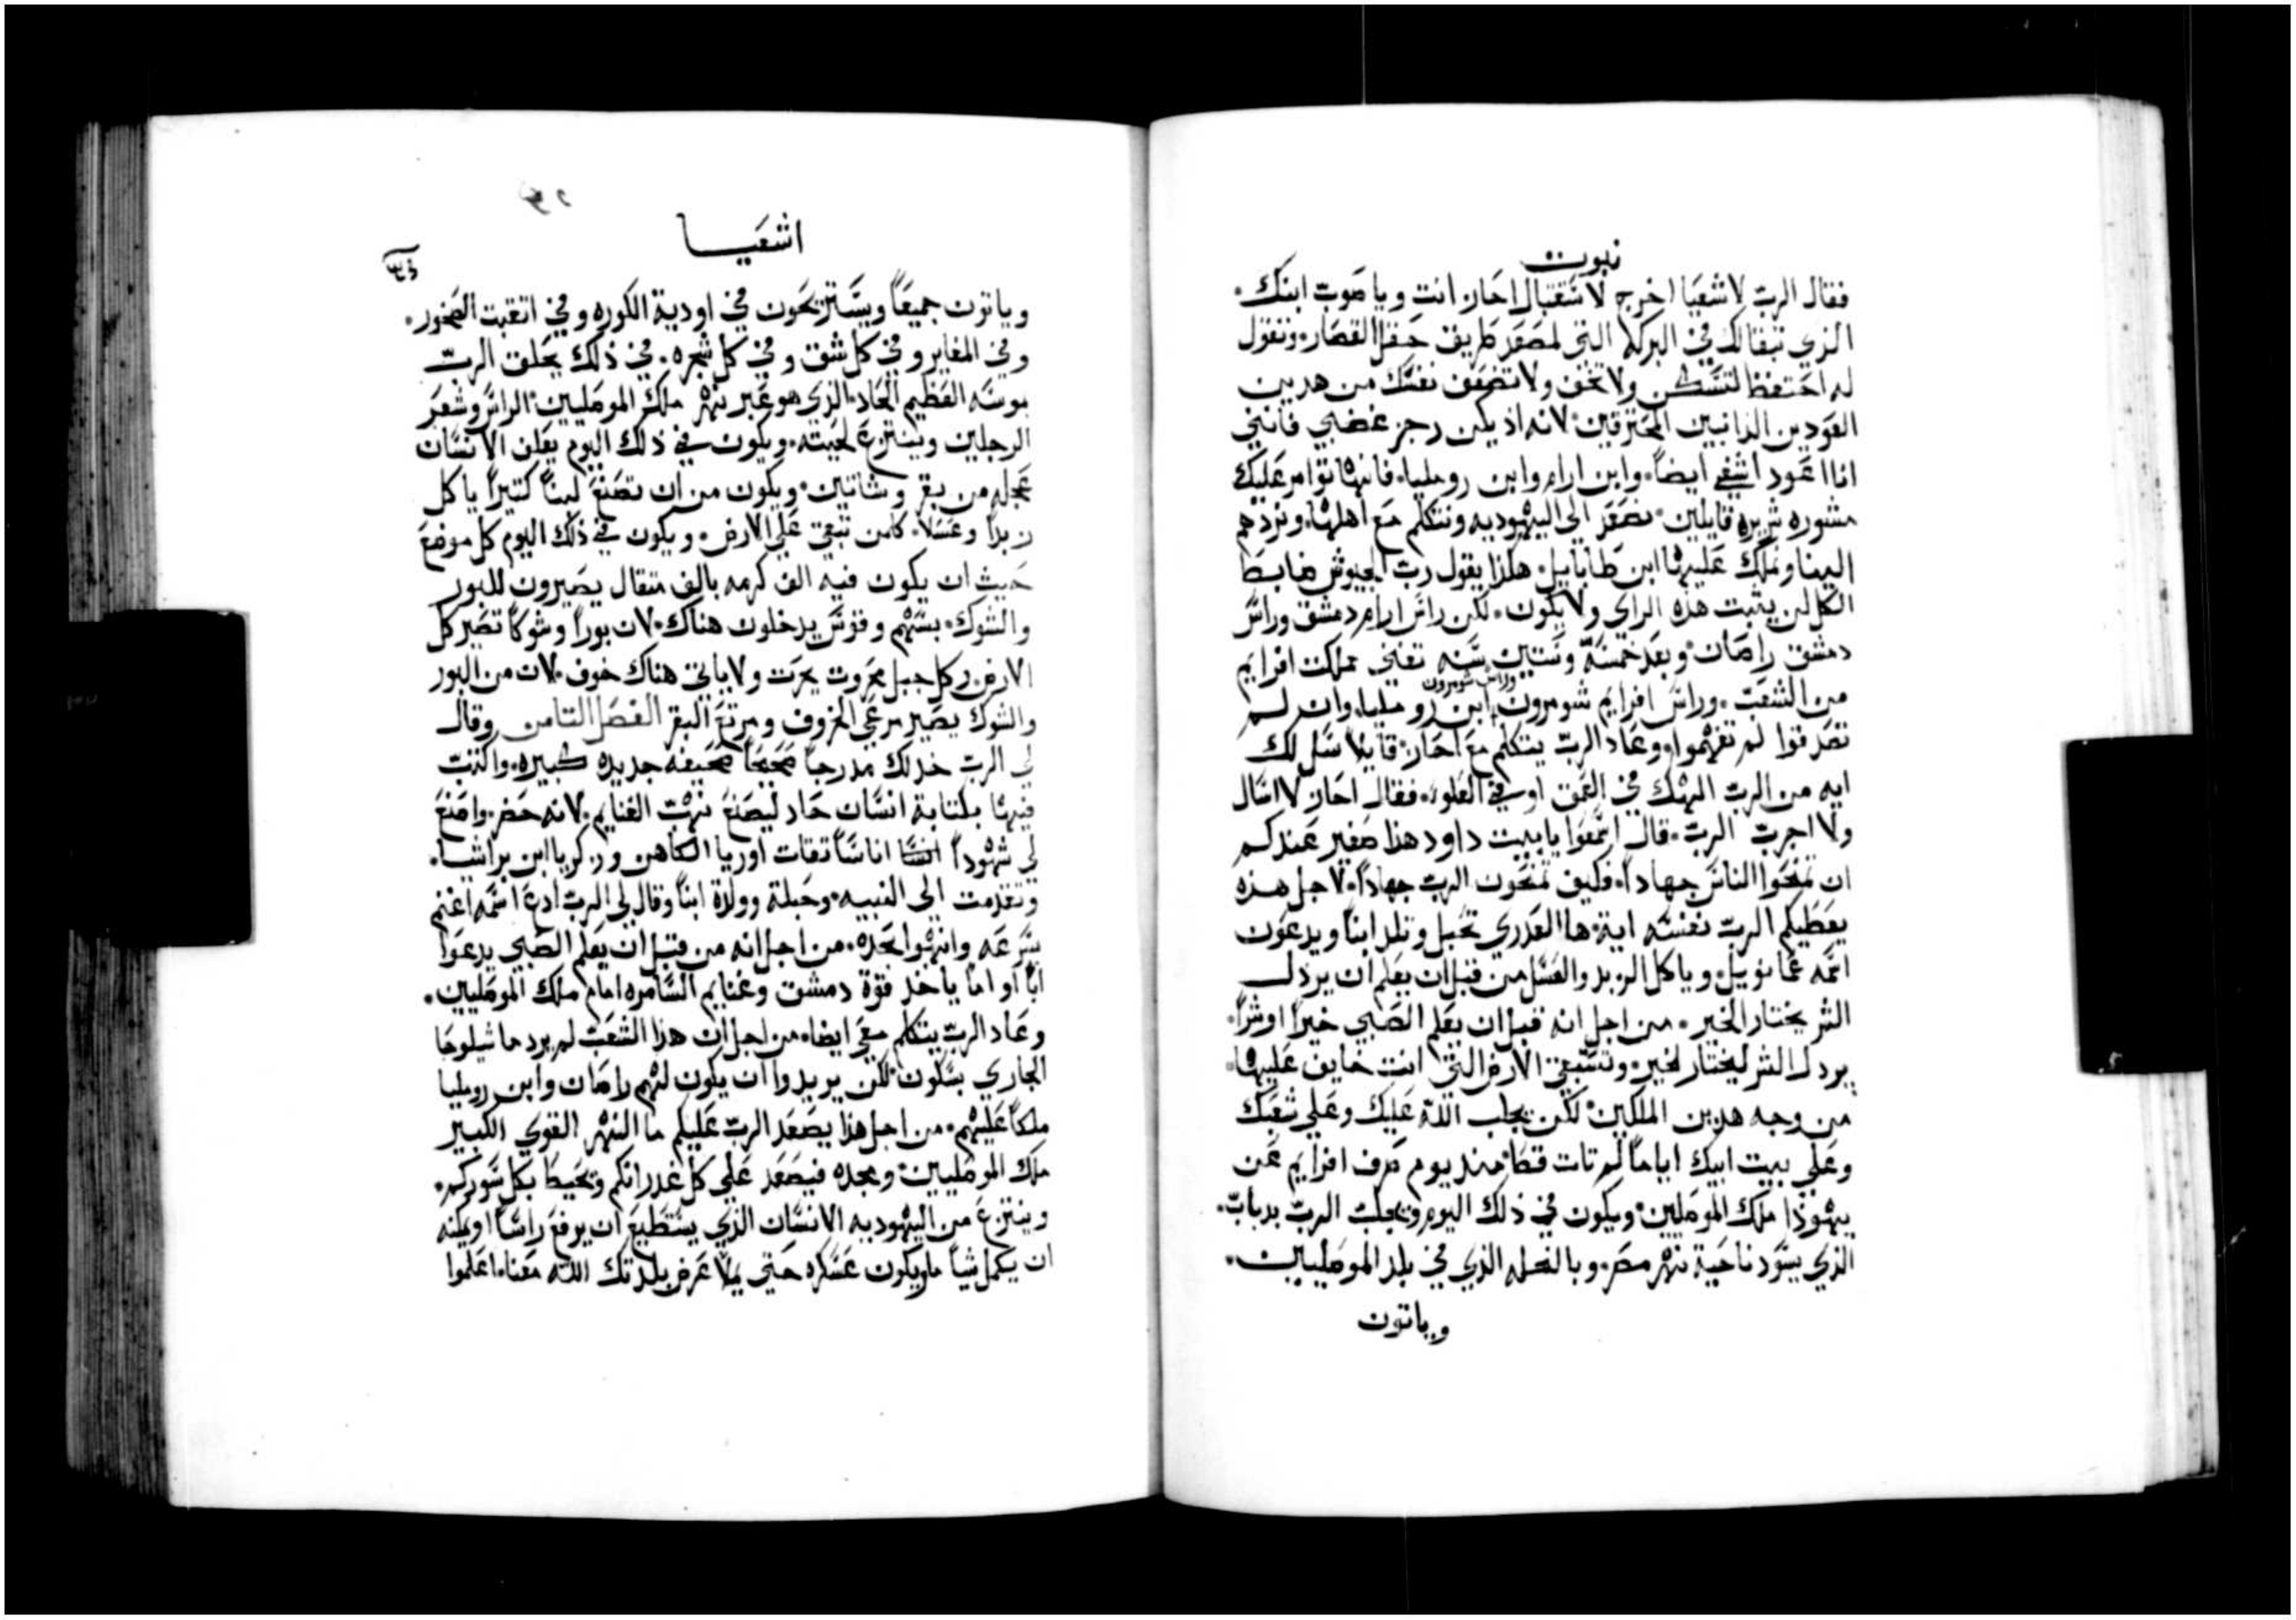 نبوت
فقال الرب لاشعيا اخرج لاستقبال احاز انت وياصوب ابنك.
الذي تبقا لك في البركه التي لمصعد طريق حقل القصار. وتقول
له احتفظ لتسكن ولا تخف ولا تضعف نفسك من هدين
العودين الدانبين المحترقين. لانه اذ يكن رجز غضبي فانني
انا اعود اشفي ايضاً. وابن ارام وابن روميليا. فانهما تؤامر عليك
مشوره شريره قايلين. نصعد الي اليهوديه ونتكلم مع اهلها. ونردهم
الينا ونملك عليها ابن طابابيل. هكذا يقول رب الجيوش ضابط
الكل لن يثبت هذه الراي ولا يكون. لكن راس ارام دمشق وراس
دمشق راصان. وبعد خمسة وستين سنه تفني مملكت افرايم
من الشعب. وراس افرايم شومرون وراس شومرون ابن روميليا. وان لم
تصدقوا لم تفهموا. وعاد الرب يتكلم مع احاز. قايلا سل لك
ايه من الرب الهك في العمق او في العلو. فقال احاز لا اسال
ولا اجرب الرب. قال اسمعوا يا بيت داود هذا صغير عندكم
ان تمنحوا الناس جهاداً. فكيف تمنحون الرب جهاداً. لاجل هذه
يعطيكم الرب نفسه اية. ها العدري تحبل وتلد ابناً ويدعون
اسمه عمانوييل. وياكل الزبد والعسل من قبل ان يعلم ان يردل
الشر يختار الخير. من اجل انه قبل ان يعلم الصبي خيراً او شراً.
يردل الشر ليختار لخير. وتستبقي الارض التي انت خايف عليها.
من وجه هدين الملكين. لكن يجلب الله عليك وعلي شعبك
وعلي بيت ابيك اياماً لم تات قط. مند يوم صرف افرايم عن
يهوذا ملك الموصليين. ويكون في ذلك اليوم ويجلب الرب بدباب.
الذي يسود ناحية نهر مصر. وبالنحله الذي في بلد الموصليين.
وياتون
اشعيا
وياتون جميعاً ويستريحون في اودية الكوره وفي اتقبت الصخور.
وفي المغاير وفي كل شق وفي كل شجره. في ذلك يحلق الرب
بموسه العظيم الحاد. الذي هو عبر نهر ملك الموصليين. الراس وشعر
الرجلين وينتزع لحيته. ويكون في ذلك اليوم يعلن الانسان
عجله من بقر وشاتين. ويكون من ان تصنع لبناً كتيراً ياكل
زبداً وعسلاً. كامن تبقي علي الارض. ويكون في ذلك اليوم كل موضع
حيث ان يكون فيه الف كرمه بالف متقال يصيرون للبور
والشوك. بسهم وقوس يدخلون هناك. لان بوراً وشوكاً تصير كل
الارض. وكل جبل محروت يحرت ولا ياتي هناك خوف. لان من البور
والشوك يصير مرعي الخروف ومرتع البقر الفصل التامن وقال
لي الرب خد لك مدرجاً صحيحاً صحيفه جديده كبيره. واكتب
فيها بكتابة انسان حاد ليصنع نهب الغنايم. لانه حضر. واصنع
لي شهوداً اناساً تقات اوريا الكاهن وزكريا ابن براشيا.
وتقدمت الي النبيه. وحبلة وولدة ابناً وقال لي الرب ادع اسمه اغنم
بسرعه وانهبوا بحده. من اجل انه من قبل ان يعلم الصبي يدعوا
اباً او اماً ياخد قوة دمشق وغنايم السامره امام ملك الموصليين.
وعاد الرب يتكلم معي ايضا. من اجل ان هذا الشعب لم يرد ما شيلوحا
الجاري بسكون. لكن يريدوا ان يكون لهم راصان وابن روميليا
ملكاً عليهم. من اجل هذا يصعد الرب عليكم ما النهر القوي الكبير
ملك الموصليين. ومجده فيصعد علي كل غدرانكم ويحيط بكل سوركم.
وينتزع من اليهوديه الانسان الذي يستطيع ان يرفع راساً او يمكنه
ان يكمل شياً ما ويكون عسكره حتي يملا عرض بلدتك الله معنا. اعلموا